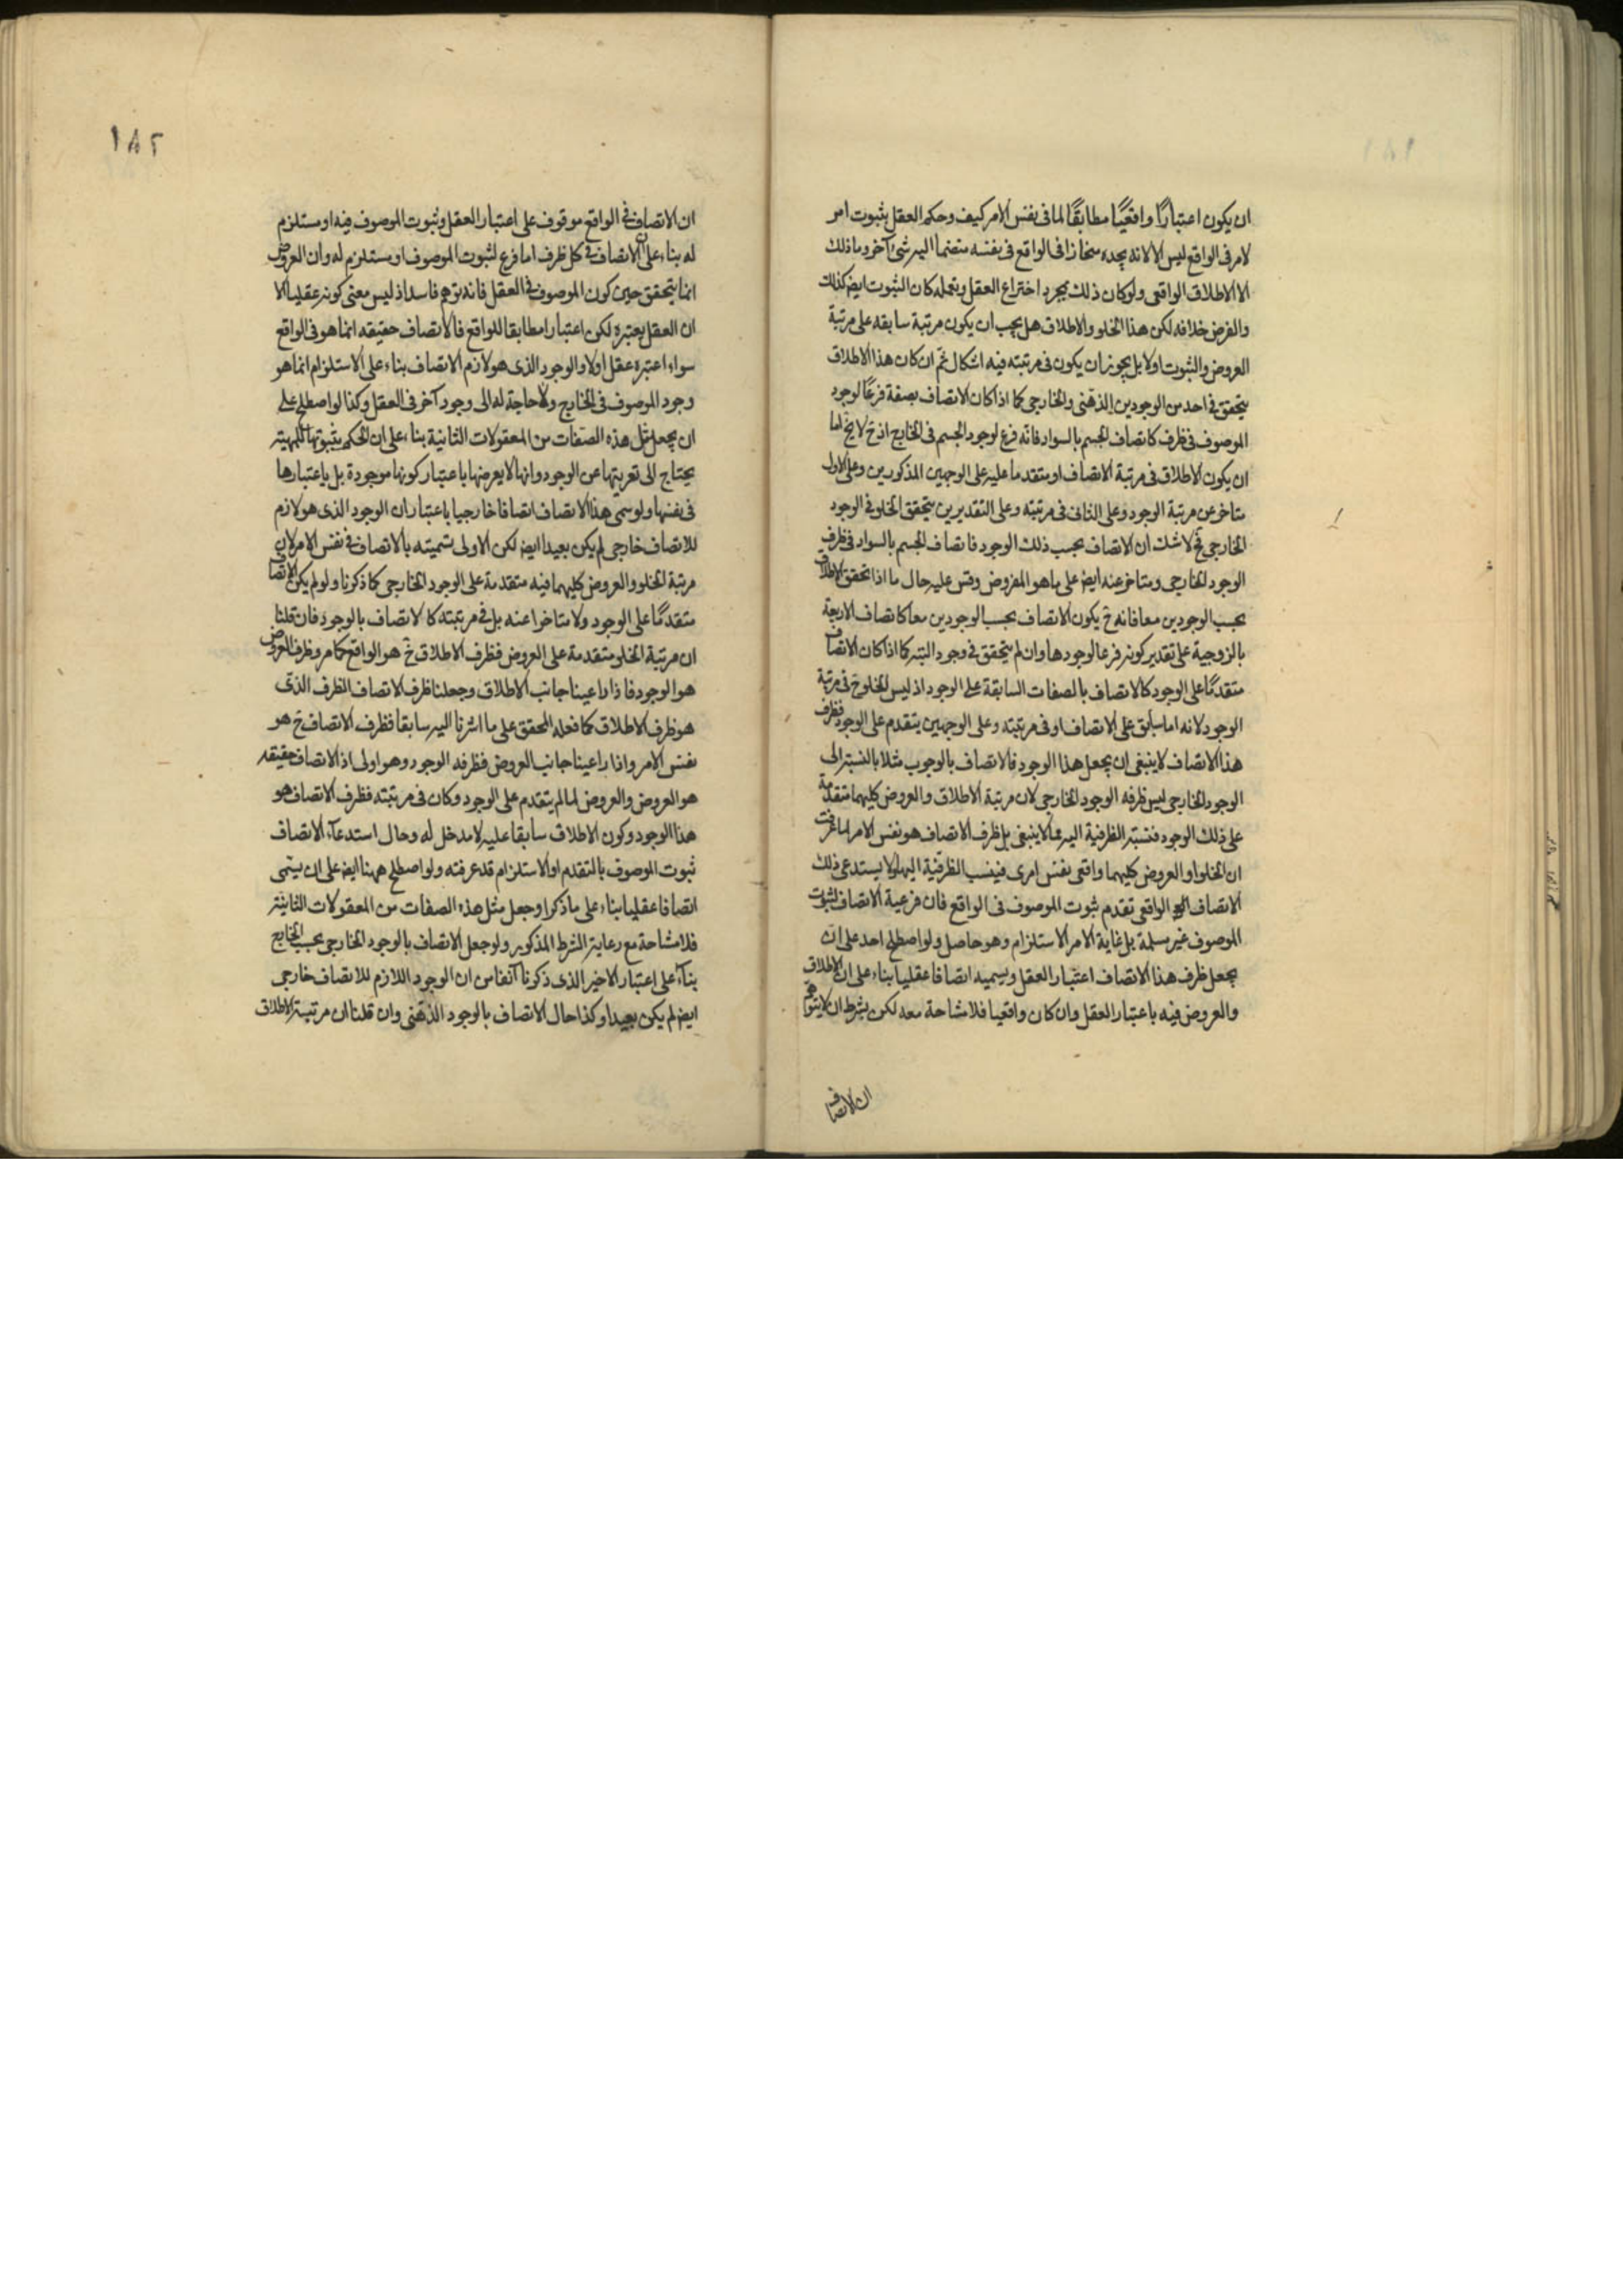 ان يكون اعتبارًا واقعيًا مطابقًا لما فى نفس الامر كيف وحكم العقل بثبوت امر
لامر فى الواقع ليس الا لانه يجده منحازا فى الواقع فى نفسه منضما اليه شئ آخر وما ذلك
الا الاطلاق الواقعى ولو كان ذلك بمجرد اختراع العقل وتعمله كان الثبوت ايض كذلك
والفرض خلافه لكن هذا الخلو والاطلاق هل يجب ان يكون مرتبة سابقه على مرتبة
العروض والثبوت او لا بل يجوز ان يكون فى مرتبته فيه اشكال ثم ان كان هذا الاطلاق
يتحقق فى احد من الوجودين الذهنى والخارجى كما اذا كان الاتصاف بصفة فرعًا لوجود
الموصوف فى ظرف كاتصاف الجسم بالسواد فانه فرع لوجود الجسم فى الخارج اذ ح لا يخ اما
ان يكون الاطلاق فى مرتبة الاتصاف او متقدما عليه على الوجهين المذكورين وعلى الاول
متاخر عن مرتبة الوجود وعلى الثانى فى مرتبته وعلى التقديرين يتحقق الخلو فى الوجود
الخارجى فح لا شك ان الاتصاف بحسب ذلك الوجود فاتصاف الجسم بالسواد فى ظرف
الوجود الخارجى ومتاخر عنه ايض على ما هو المفروض وقس عليه حال ما اذا تحقق الاطلاق
بحسب الوجودين معا فانه ح يكون الاتصاف بحسب الوجودين معا كاتصاف الاربعة
بالزوجية على تقدير كونه فرعا لوجودها وان لم يتحقق فى وجود البته كما اذا كان الاتصاف
متقدمًا على الوجود كالاتصاف بالصفات السابقة على الوجود اذ ليس الخلو ح فى مرتبة
الوجود لانه اما سابق على الاتصاف او فى مرتبته وعلى الوجهين يتقدم على الوجود فظرف
هذا الاتصاف لا ينبغى ان يجعل هذا الوجود فالاتصاف بالوجوب مثلا بالنسبة الى
الوجود الخارجى ليس ظرفه الوجود الخارجى لان مرتبة الاطلاق والعروض كليهما متقدمة
على ذلك الوجود فنسبة الظرفية اليه مما لا ينبغى بل ظرف الاتصاف هو نفس الامر لما عرفت
ان الخلو والعروض كليهما واقعى نفس امرى فينسب الظرفية اليها ولا يستدعى ذلك
الاتصاف الواقعى تقدم ثبوت الموصوف فى الواقع فان فرعية الاتصاف لثبوت
الموصوف غير مسلمة بل غاية الامر الاستلزام وهو حاصل ولو اصطلح احد على ان
يجعل ظرف هذا الاتصاف اعتبار العقل ويسميه اتصافا عقليا بناء على ان الاطلاق
والعروض فيه باعتبار العقل وان كان واقعيا فلا مشاحة معه لكن بشرط ان لا يتوهم
ان الاتصاف
١٨٢
ان الاتصاف فى الواقع موقوف على اعتبار العقل وثبوت الموصوف فيه او مستلزم
له بناء على ان الاتصاف فى كل ظرف اما فرع لثبوت الموصوف او مستلزم له وان العروض
انما يتحقق حين كون الموصوف فى العقل فانه توهم فاسد اذ ليس معنى كونه عقليا الا
ان العقل يعتبره لكن اعتبارا مطابقا للواقع فالاتصاف حقيقه انما هو فى الواقع
سواء اعتبره عقل او لا والوجود الذى هو لازم الاتصاف بناء على الاستلزام انما هو
وجود الموصوف فى الخارج ولا حاجة له الى وجود آخر فى العقل وكذا لو اصطلح على
ان يجعل مثل هذه الصفات من المعقولات الثانية بناء على ان الحكم بثبوتها للمهية
يحتاج الى تعريتها عن الوجود وانها لا يعرضها باعتبار كونها موجودة بل باعتبارها
فى نفسها ولو سمى هذا الاتصاف اتصافا خارجيا باعتبار ان الوجود الذى هو لازم
للاتصاف خارجى لم يكن بعيدا ايض لكن الاولى تسميته بالاتصاف فى نفس الامر لان
مرتبة الخلو والعروض كليهما فيه متقدمة على الوجود الخارجى كما ذكرنا ولو لم يكن الاتصاف
متقدمًا على الوجود ولا متاخرا عنه بل فى مرتبته كالاتصاف بالوجود فان قلنا
ان مرتبة الخلو متقدمة على العروض فظرف الاطلاق ح هو الواقع كما مر وظرف العروض
هو الوجود فاذا راعينا جانب الاطلاق وجعلنا ظرف الاتصاف الظرف الذى
هو ظرف الاطلاق كما فعله المحقق على ما اشرنا اليه سابقا فظرف الاتصاف ح هو
نفس الامر واذا راعينا جانب العروض فظرفه الوجود وهو اولى اذ الاتصاف حقيقه
هو العروض والعروض لما لم يتقدم على الوجود وكان فى مرتبته فظرف الاتصاف هو
هذا الوجود وكون الاطلاق سابقا عليه لا مدخل له وحال استدعاء الاتصاف
ثبوت الموصوف بالتقدم او الاستلزام قد عرفته ولو اصطلح ههنا ايض على ان يسمى
اتصافا عقليا بناء على ما ذكر او جعل مثل هذه الصفات من المعقولات الثانية
فلا مشاحة مع رعاية الشرط المذكور ولو جعل الاتصاف بالوجود الخارجى بحسب الخارج
بناء على اعتبار الاخير الذى ذكرنا آنفا من ان الوجود اللازم للاتصاف خارجى
ايض لم يكن بعيدا وكذا حال الاتصاف بالوجود الذهنى وان قلنا ان مرتبة الاطلاق